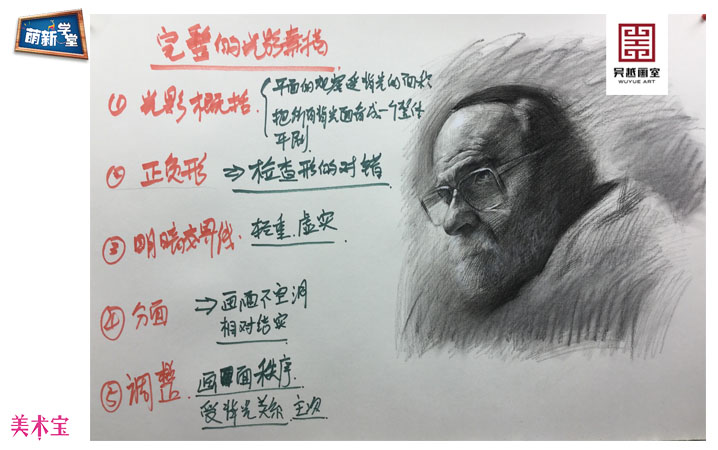 萌新学堂
吴越画室
WUYUE ART
完整的光影素描
① 光影大概括.
平面的观察受背光的面积
把所有背光面看成一个整体
平刷
② 正负形 ⇒ 检查形的对错
③ 明暗交界线. 轻重.虚实
④ 分面 ⇒ 画面不空洞
相对结实
⑤ 调整. 画面秩序.
受背光关系 主次
美术宝